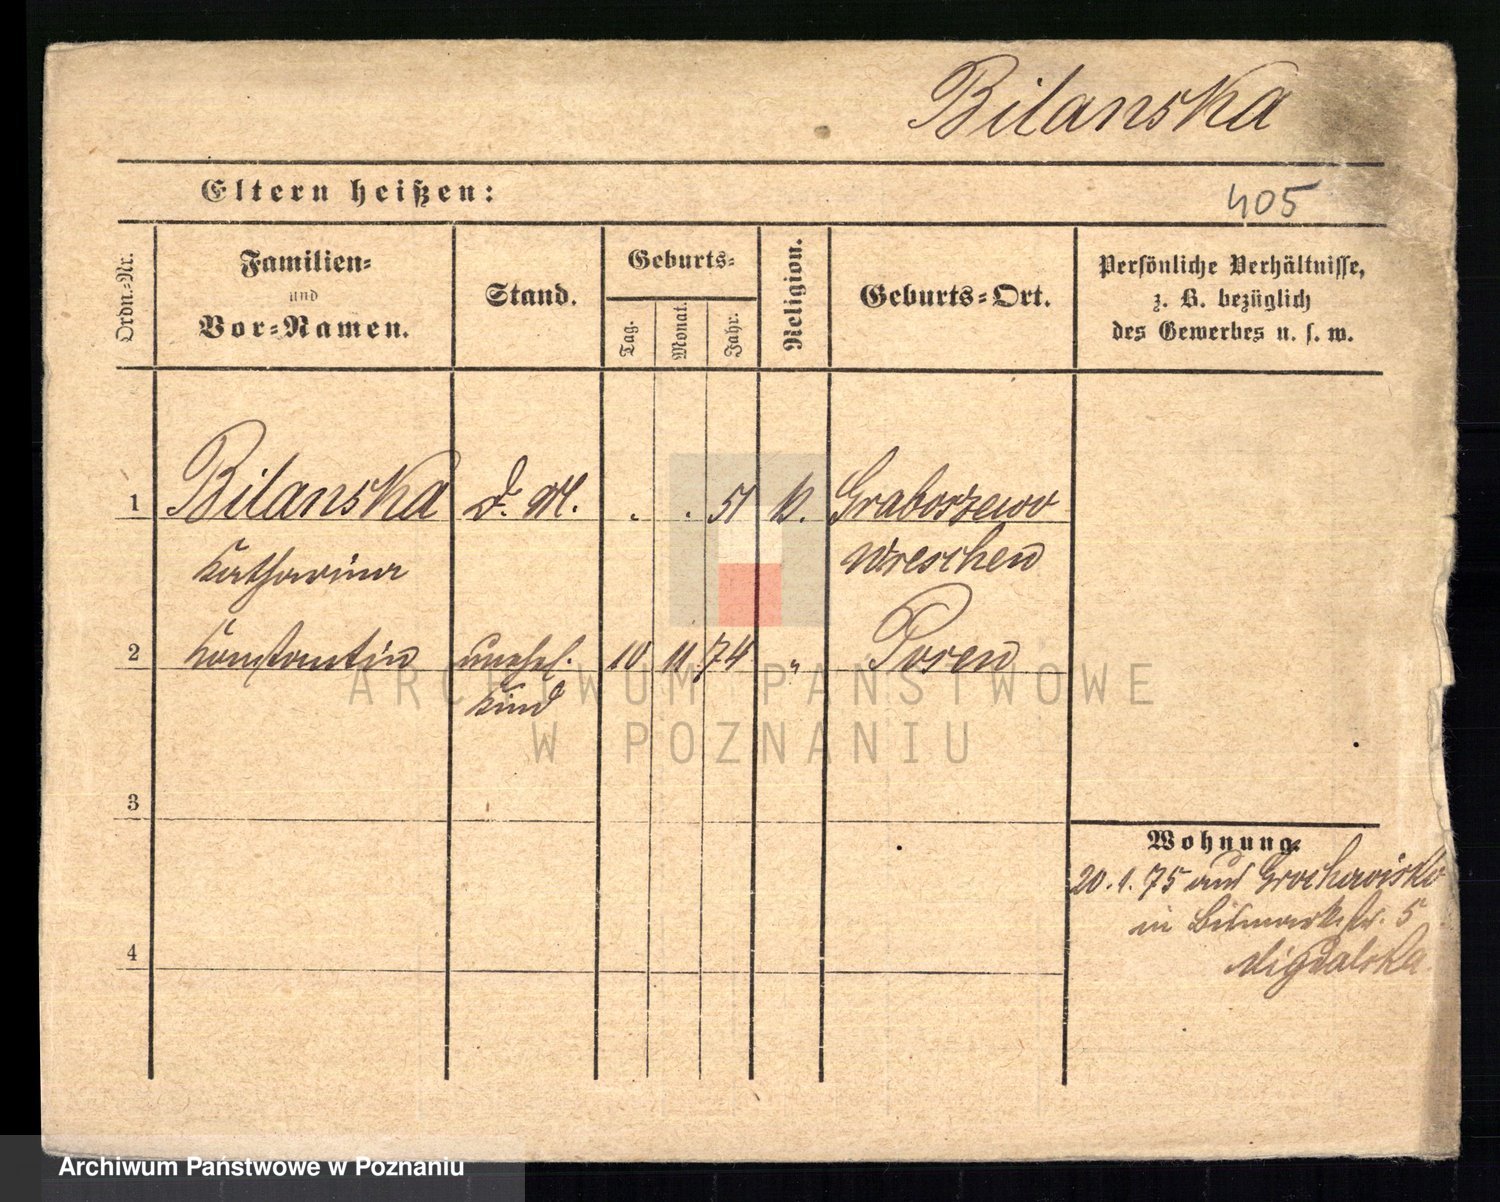 Bilanska
Eltern heißen:
405
Ordn.-Nr.
Familien-
und
Vor-Namen.
Stand.
Geburts-
Tag.
Monat.
Jahr.
Religion.
Geburts-Ort.
Persönliche Verhältnisse,
z. B. bezüglich
des Gewerbes u. s. w.
1 Bilanska d. M. . . 51 k. Graboszewo
Katharina Wreschen
2 Konstantin unehel. 10 11 74 " Posen
Kind
ARCHIWUM PAŃSTWOWE
W POZNANIU
3
Wohnung.
20.1.75 aus Grochowisko
in Bismarckstr. 5
Migdalska
4
Archiwum Państwowe w Poznaniu